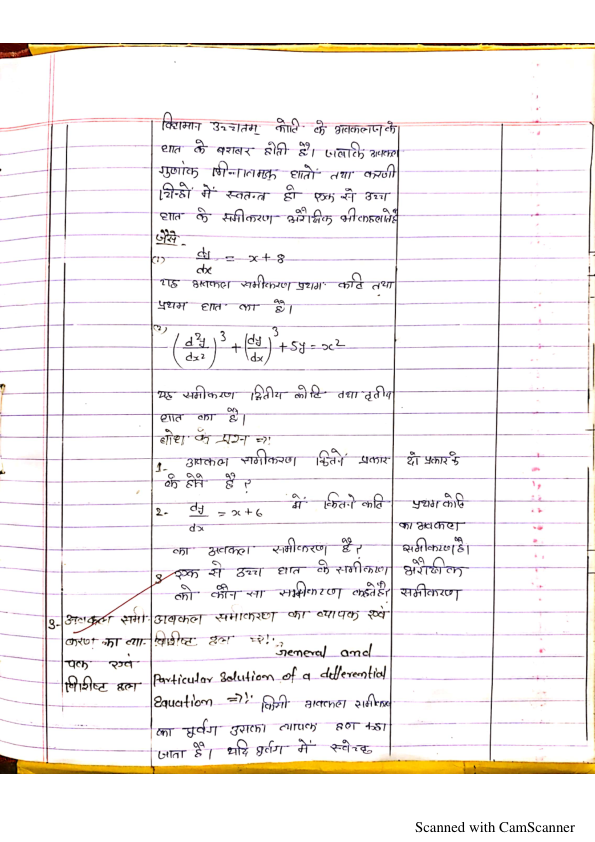 विद्यमान उच्चतम कोटि के अवकलज के
घात के बराबर होती है। जबकि अवकल
गुणांक भिन्नात्मक घातों तथा करणी
चिन्हों में स्वतन्त्र हो एक से उच्च
घात के समीकरण अरैखिक भी कहलाते है
जैसे -
(1) dy/dx = x + 8
यह अवकल समीकरण प्रथम कोटि तथा
प्रथम घात का है।
(2) (d²y/dx²)³ + (dy/dx)³ + 5y = x²
यह समीकरण द्वितीय कोटि तथा तृतीय
घात का है।
बोध के प्रश्न ⇒:
1- अवकल समीकरण कितने प्रकार दो प्रकार के
के होते है ?
2- dy/dx = x + 6 में कितने कोटि प्रथम कोटि
का अवकल
का अवकल समीकरण है ? समीकरण है।
3 एक से उच्च घात के समीकरण अरैखिक
को कौन सा समीकरण कहते है। समीकरण
3- अवकल समी- अवकल समीकरण का व्यापक एवं
करण का व्या- विशिष्ट हल ⇒:
पक एवं General and
विशिष्ट हल Particular Solution of a differential
Equation ⇒: किसी अवकल समीकरण
का पूर्वग उसका व्यापक हल कहा
जाता है। यदि पूर्वग में स्वेच्छ
Scanned with CamScanner